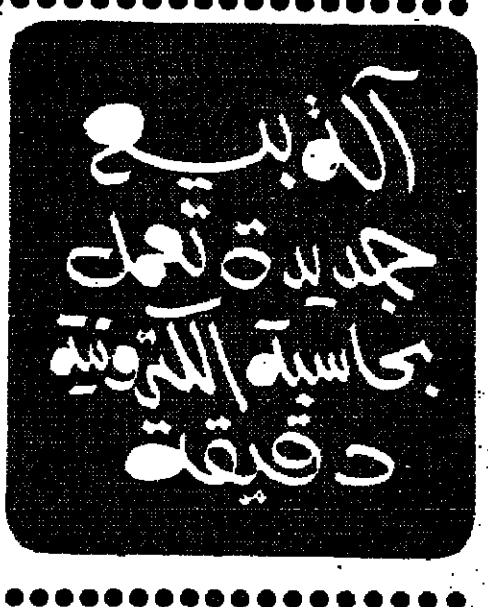 آلة بيع
جديدة تعمل
بحاسبة الكترونية
دقيقة